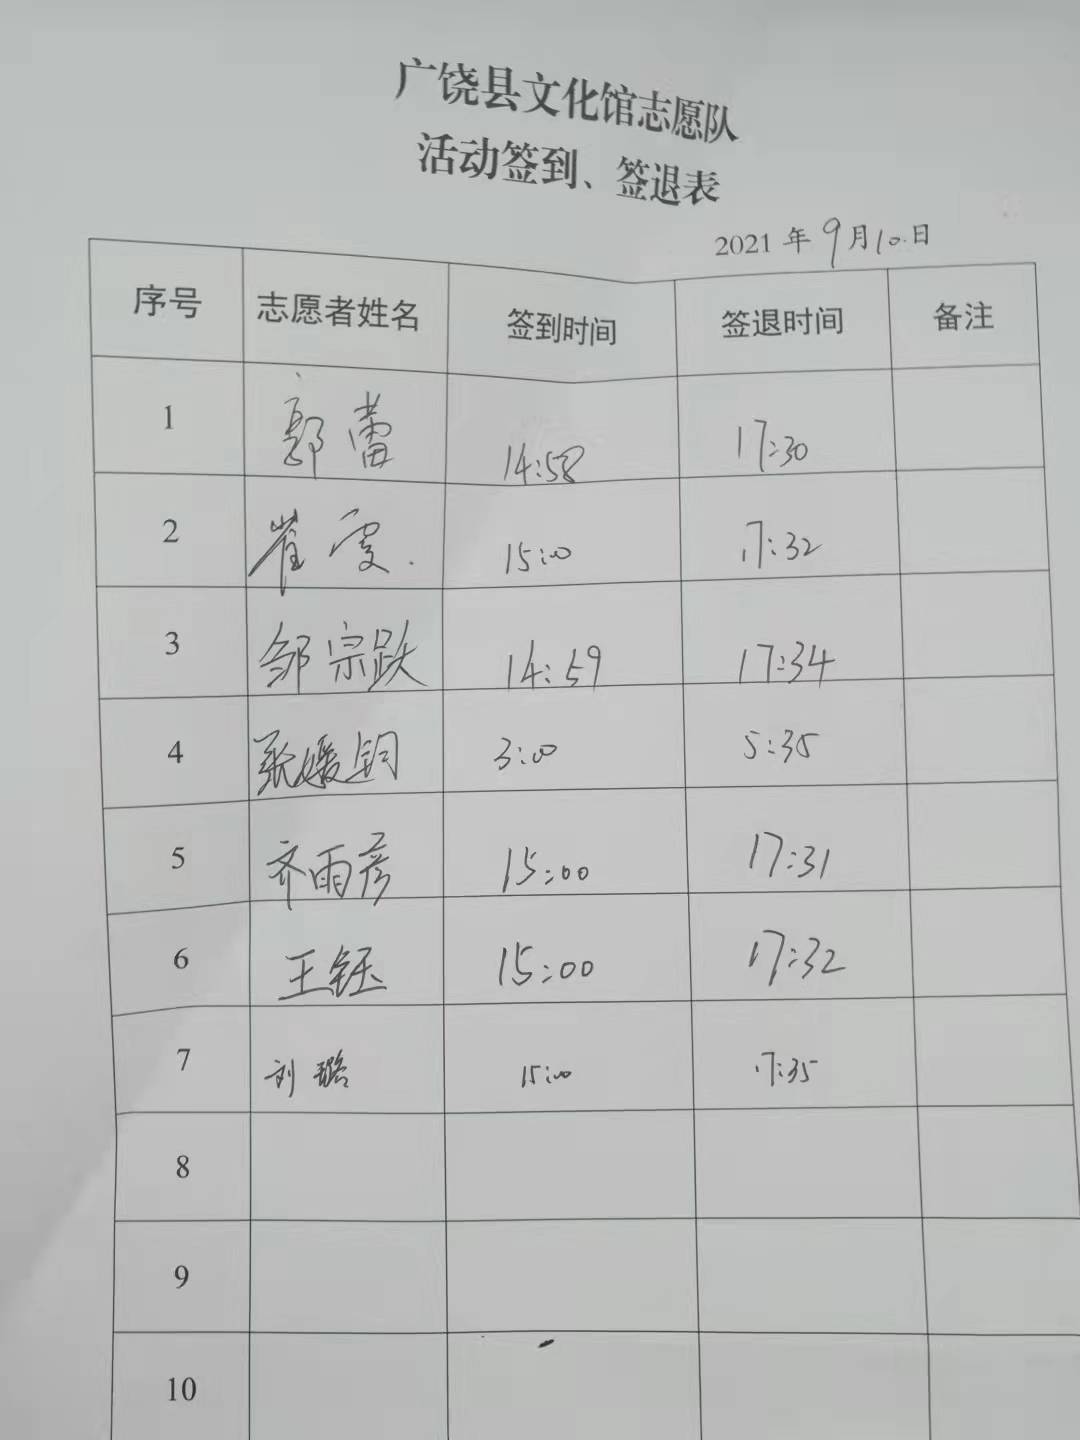 广饶县文化馆志愿队
活动签到、签退表
2021 年 9月10.日
序号 志愿者姓名 签到时间 签退时间 备注
1 郭蕾 14:58 17:30
2 崔雯. 15:00 17:32
3 邹宗跃 14:59 17:34
4 张媛 3:00 5:35
5 齐雨彦 15:00 17:31
6 王钰 15:00 17:32
7 刘璐 15:00 17:35
8
9
10